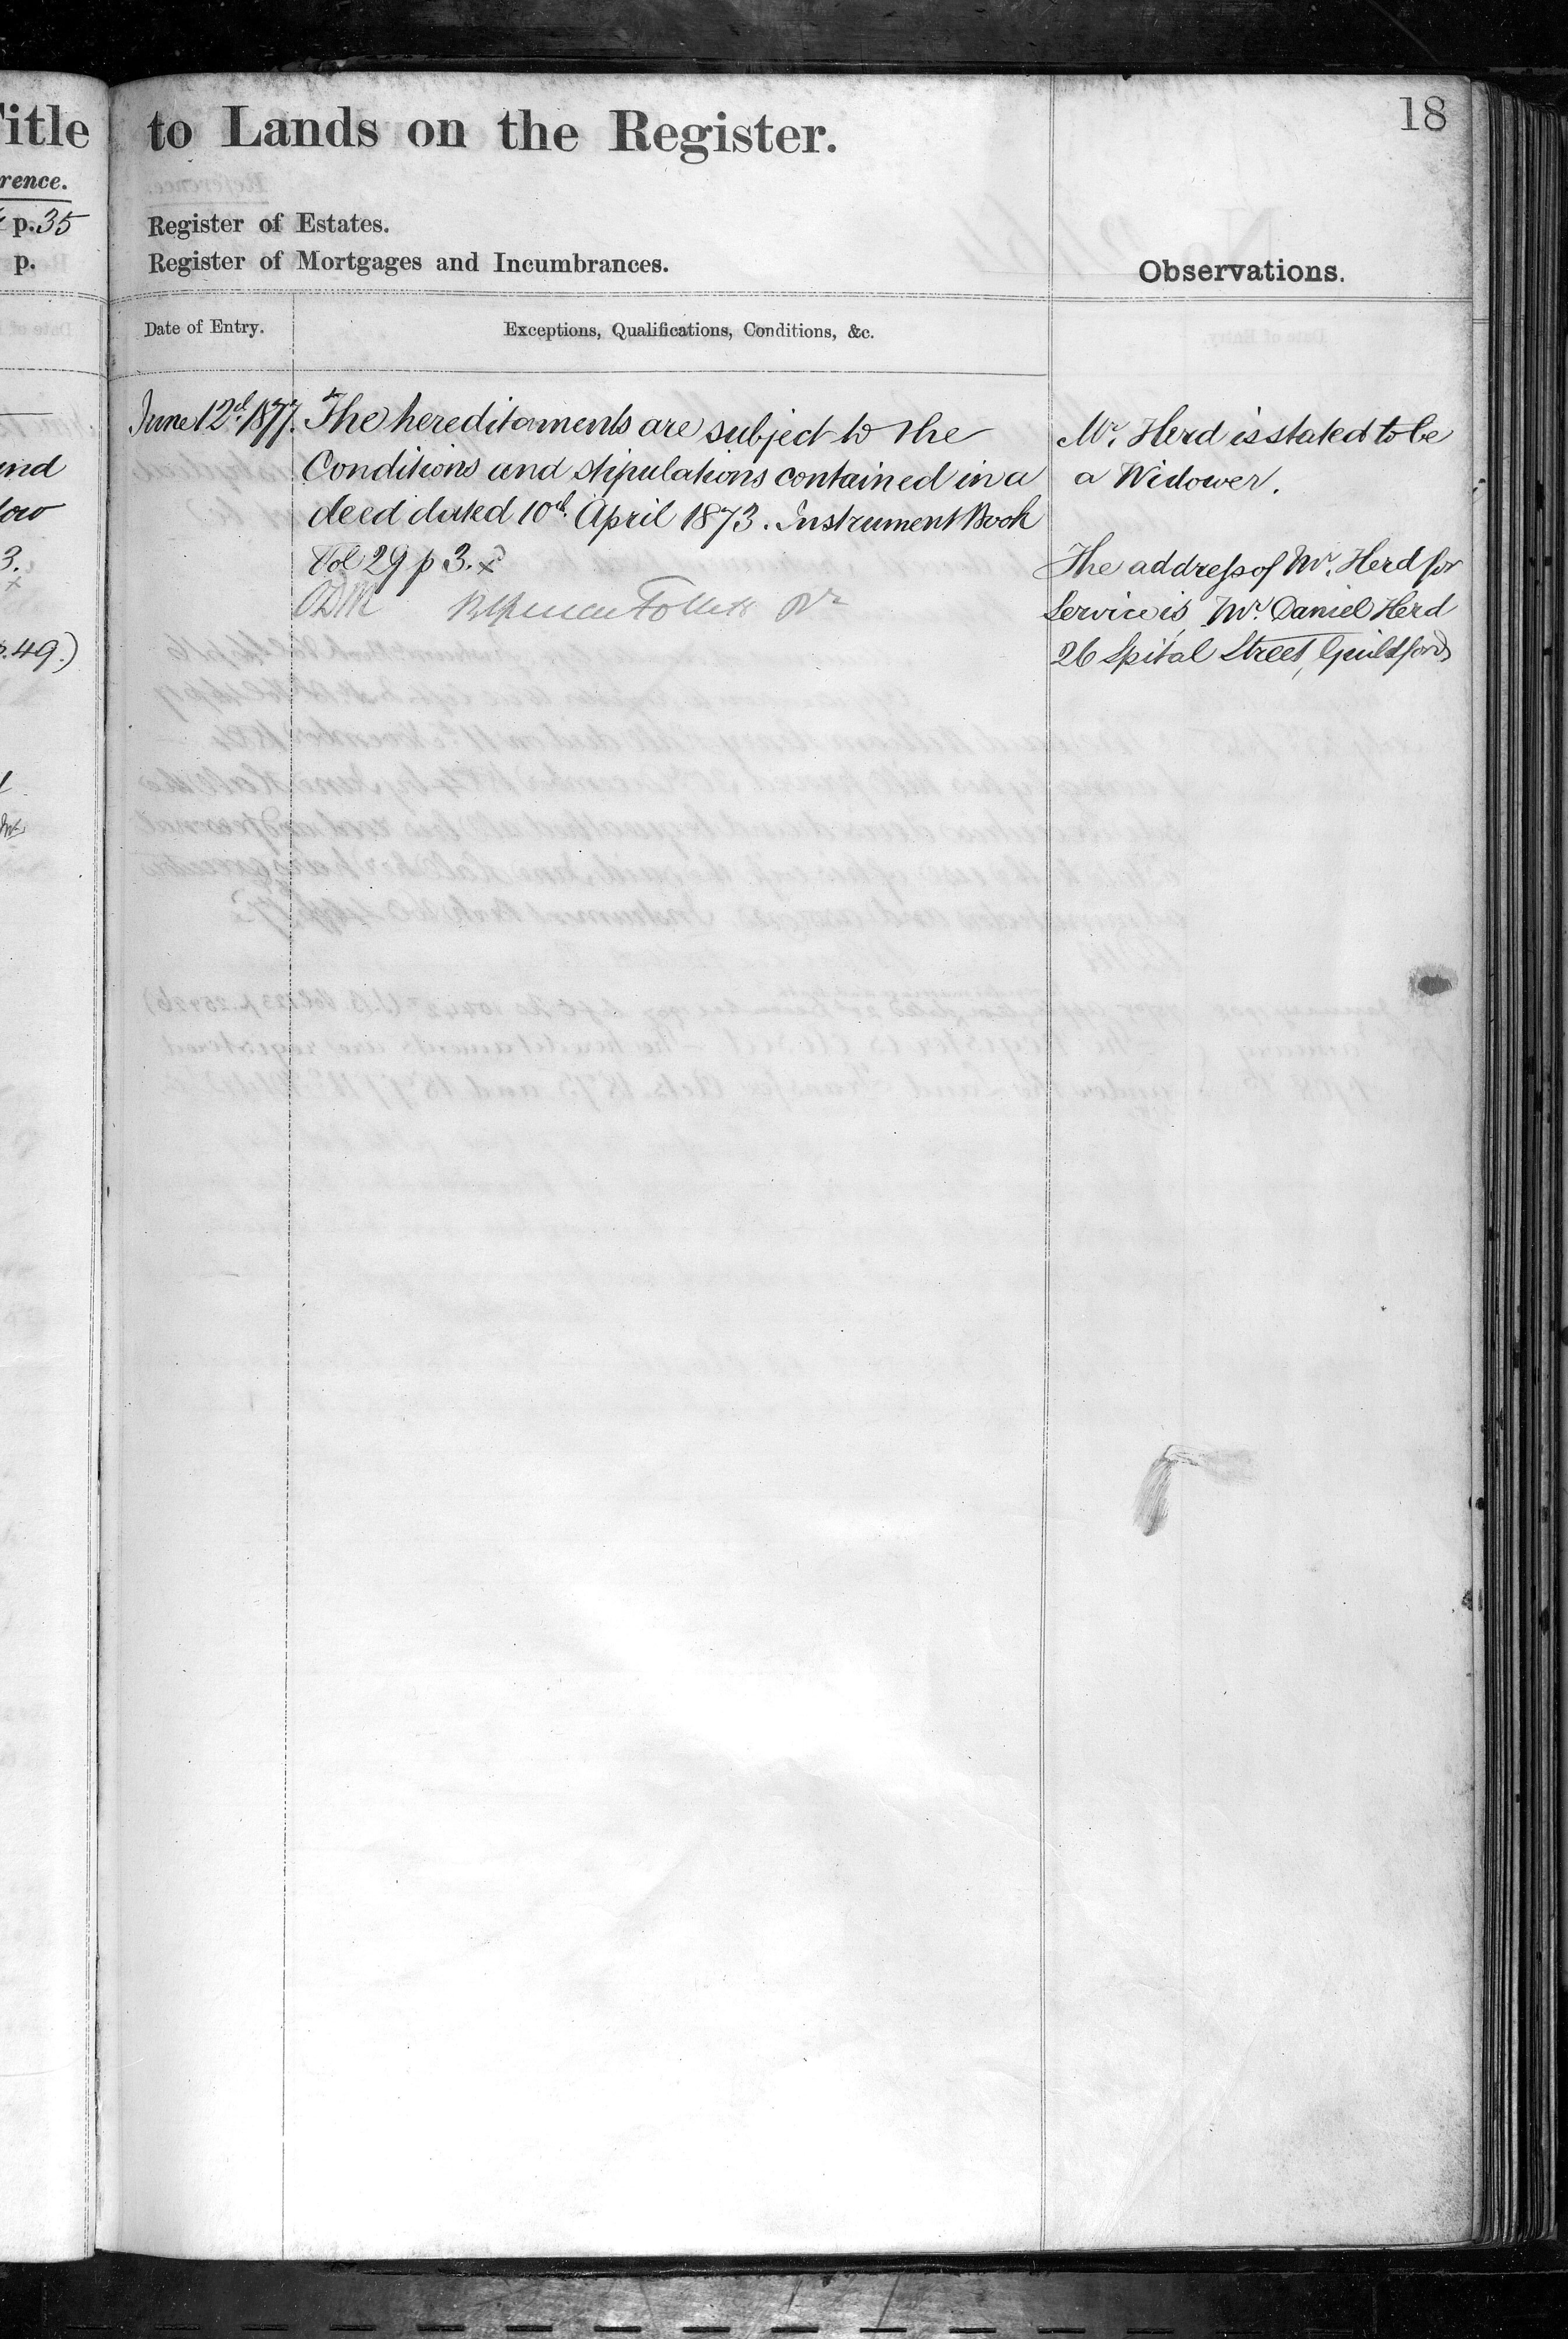 Title
rence.
p. 35
p.
ind
low
3.
x
p. 49.)
18
to Lands on the Register.
Register of Estates.
Register of Mortgages and Incumbrances.
Date of Entry.
Exceptions, Qualifications, Conditions, &c.
June 12th 1877.
The hereditaments are subject to the
Conditions and stipulations contained in a
deed dated 10th April 1873. Instrument Book
Vol 29 p 3. x
Follett
Observations.
Mr. Herd is stated to be
a Widower.
The address of Mr. Herd for
Service is Mr. Daniel Herd
26 Spital Street, Guildford